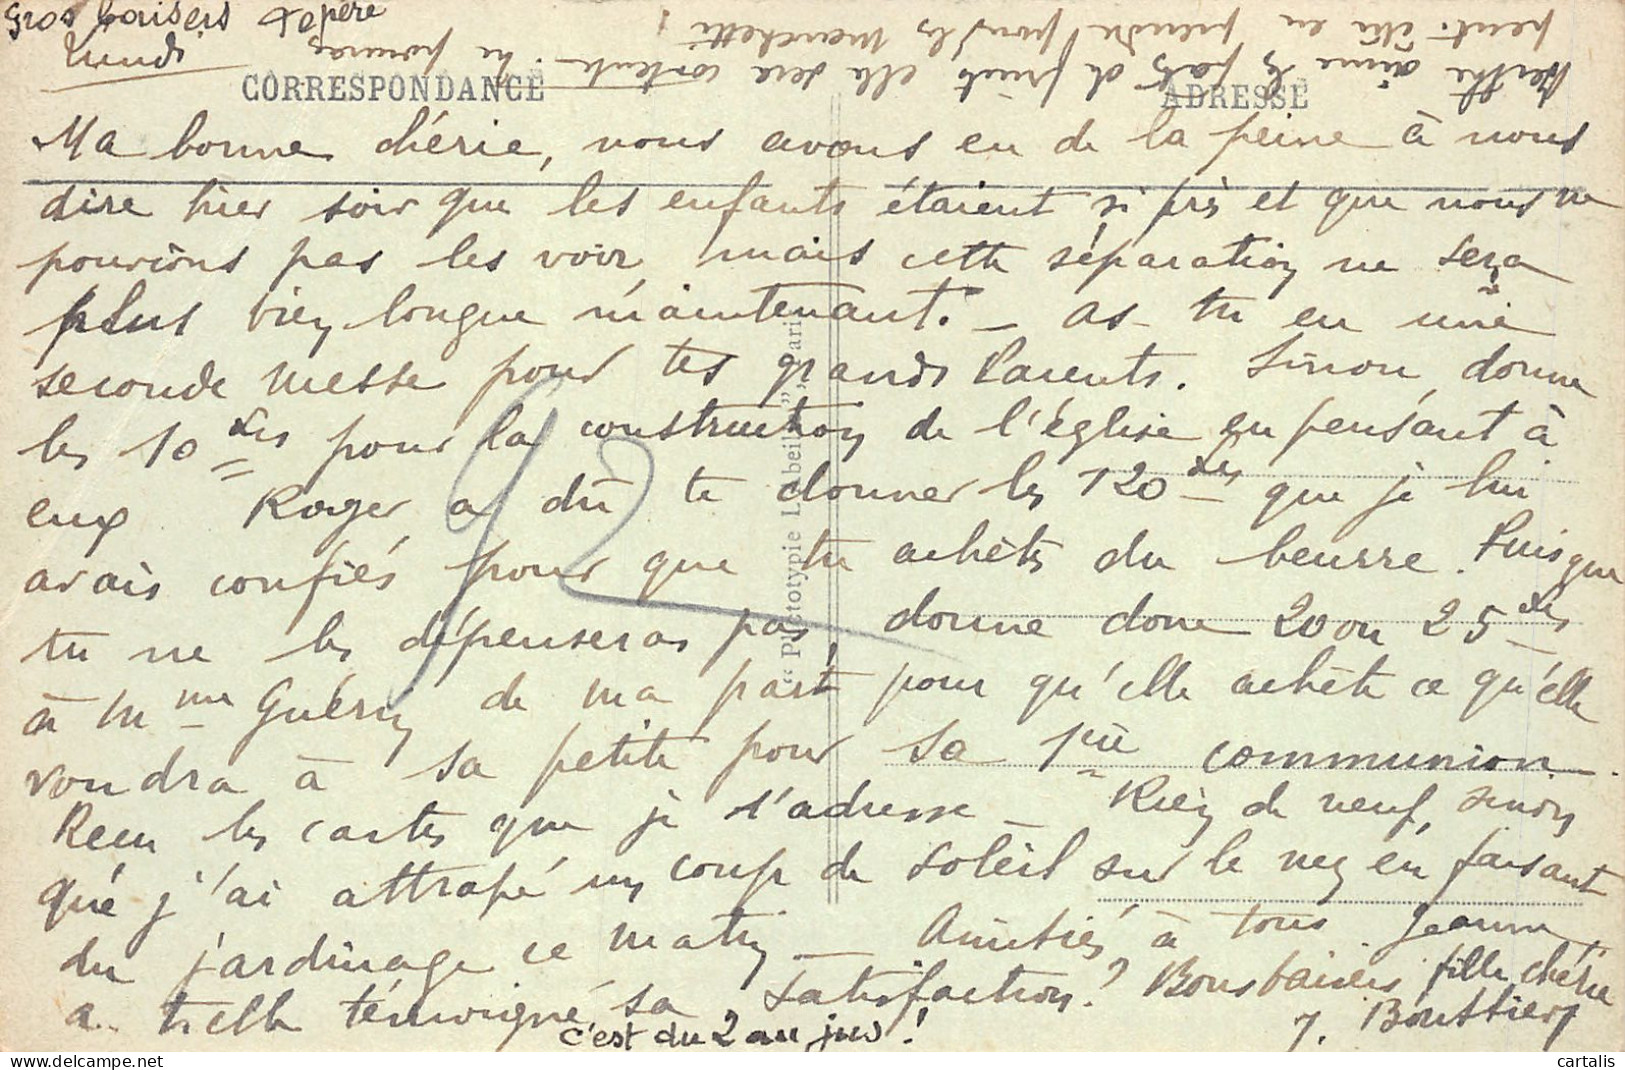 Gros baisers & père
Lundi
Berthe aime les pâtes de fruits elle sera contente. Tu pourras
peut-être en prendre pour les Marchetti !
CORRESPONDANCE
ADRESSE
Ma bonne chérie, nous avons eu de la peine à nous
dire hier soir que les enfants étaient si près et que nous ne
pouvions pas les voir, mais cette séparation ne sera
plus bien longue maintenant. - as-tu eu une
seconde messe pour tes grands Parents. Sinon, donne
les 10 frs pour la construction de l'église en pensant à
eux. Roger a dû te donner les 120 frs que je lui
avais confiés pour que tu achètes du beurre. Puisque
tu ne les dépenseras pas, donne donc 20 ou 25 frs
à Mme Guérin de ma part pour qu'elle achète ce qu'elle
voudra à sa petite pour sa 1ère communion.
Reçu les cartes que je t'adresse - Rien de neuf, sinon
que j'ai attrapé un coup de soleil sur le nez en faisant
du jardinage ce matin - Amitiés à tous Jeanne
a-t-elle témoigné sa satisfaction? Bons baisers fille chérie
c'est du 2 au jus !
J. Boussier
92
"Phototypie Labeille", Paris
cartalis